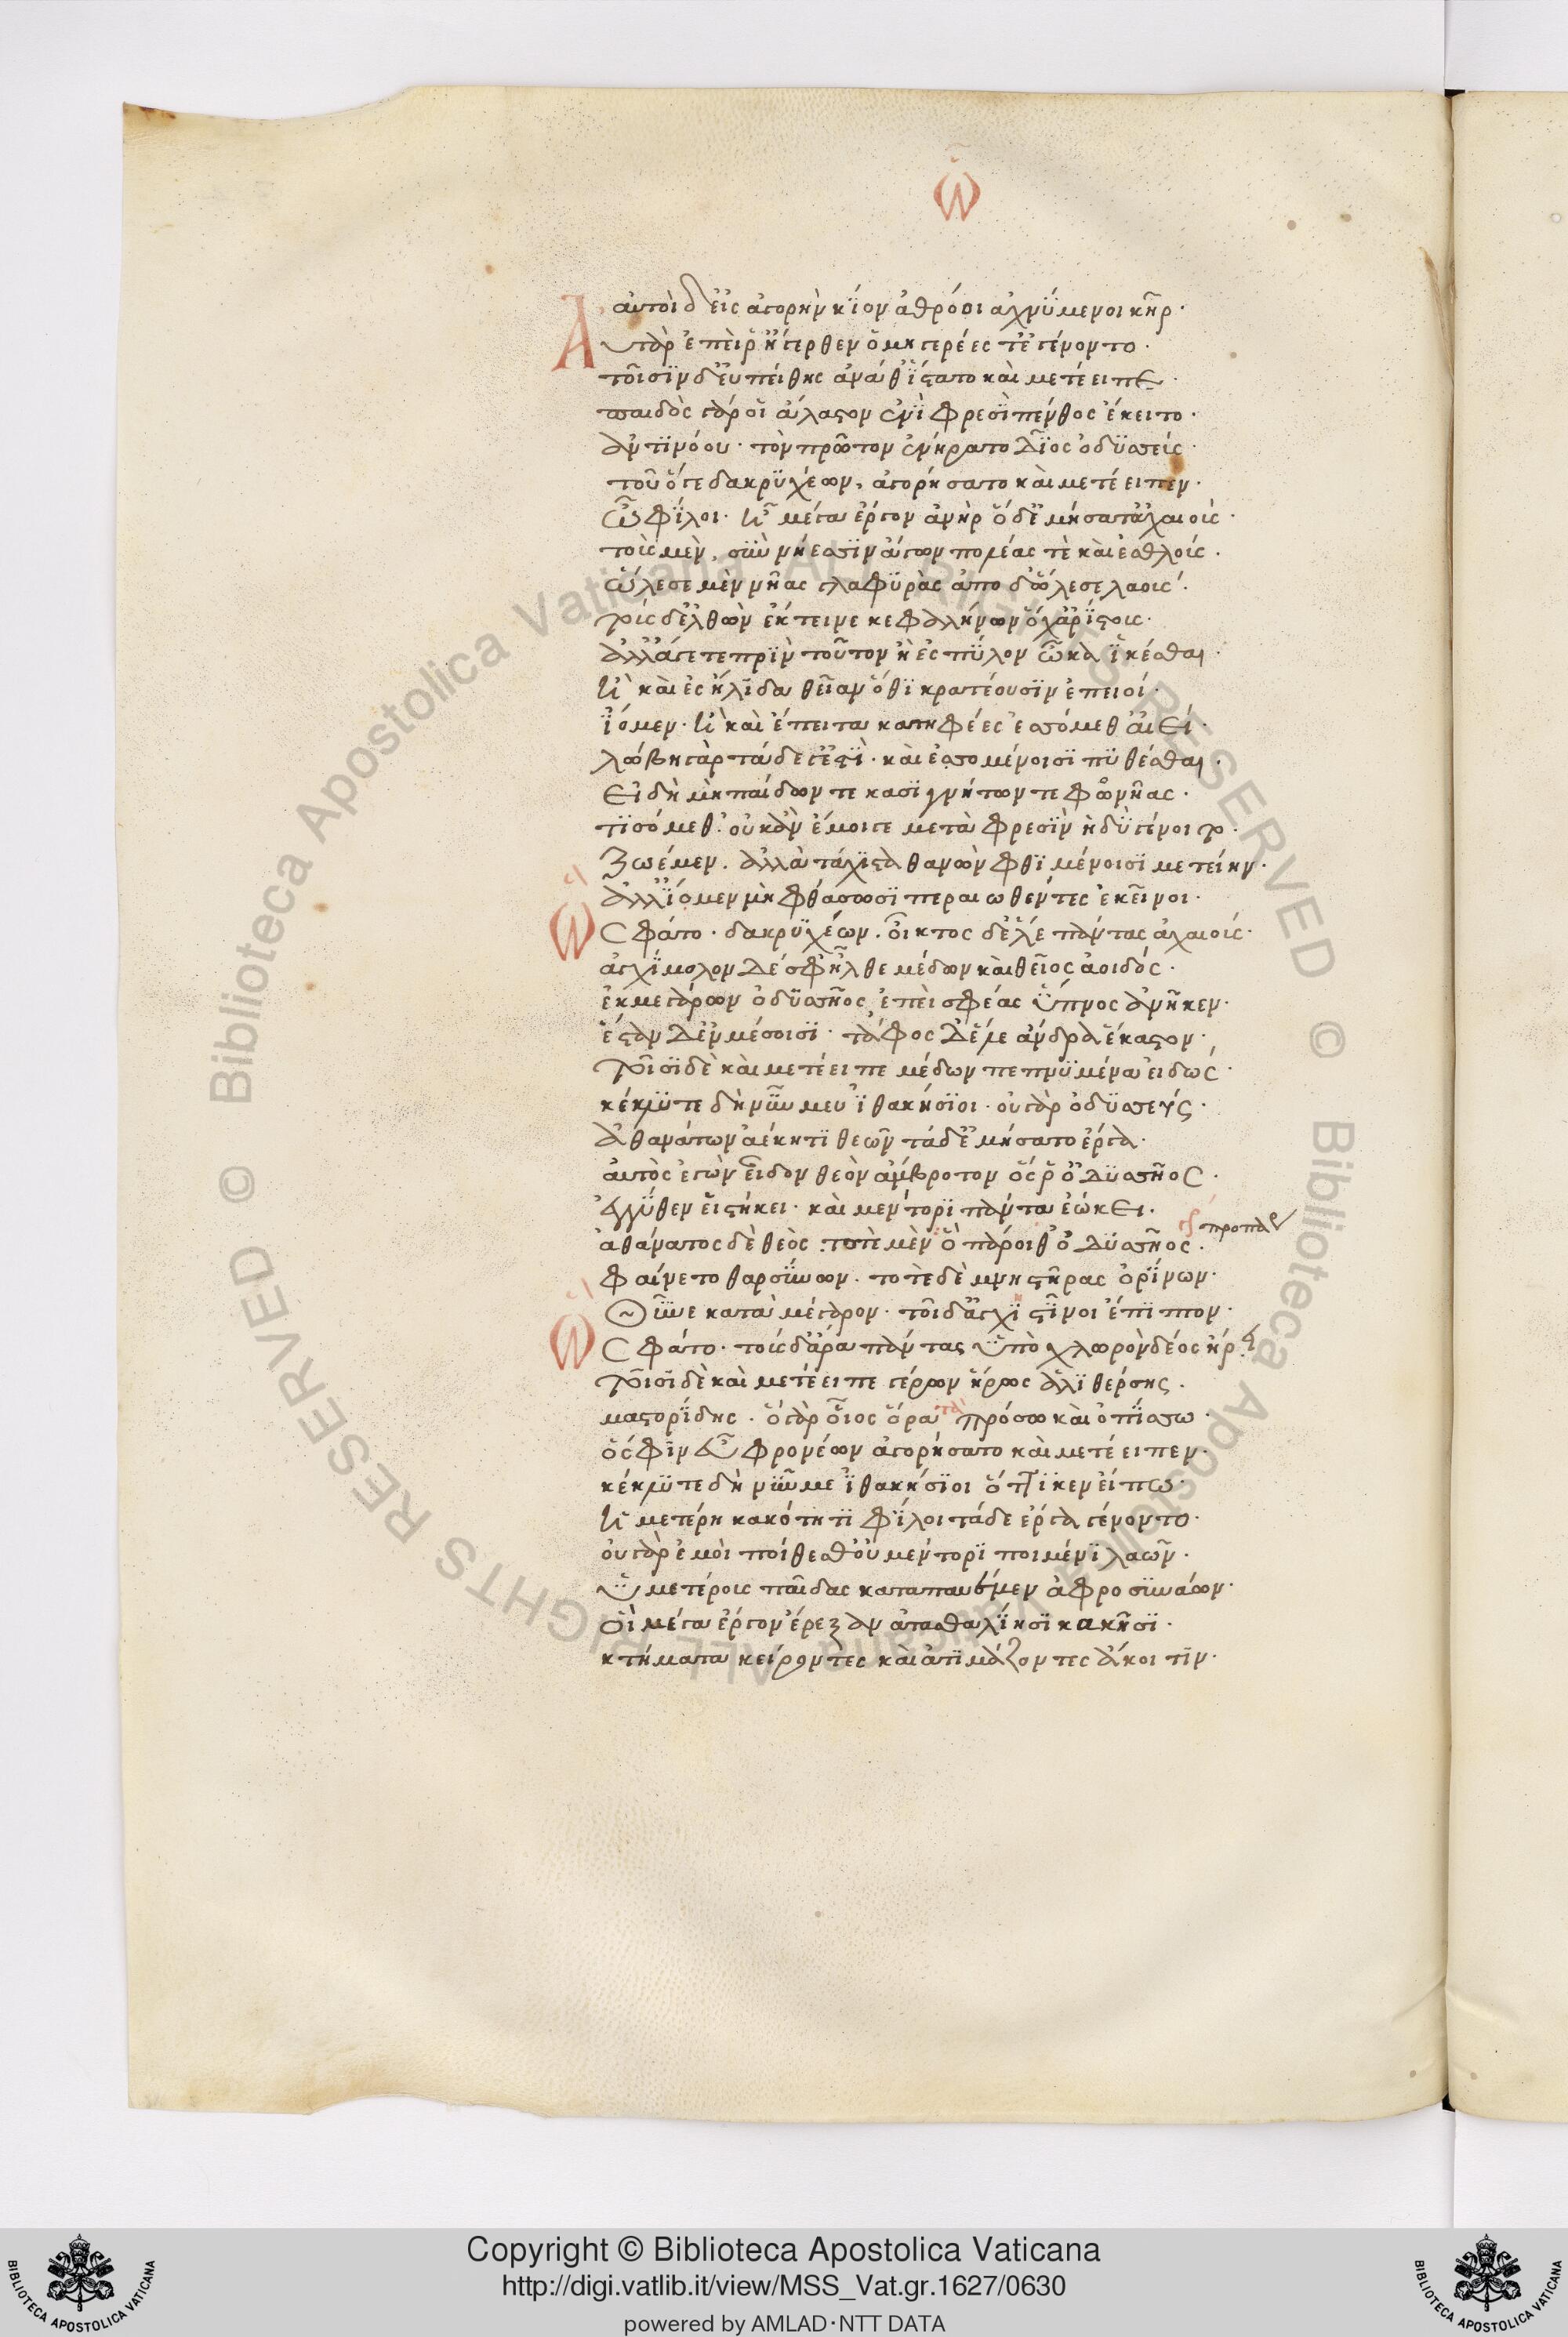 Ω
αὐτοὶ δ' εἰς ἀγορὴν κίον ἀθρόοι ἀχνύμενοι κῆρ·
Αὐτὰρ ἐπεί ῥ' ἤγερθεν ὁμηγερέες τ' ἐγένοντο·
τοῖσιν δ' εὐπείθης ἀνά θ' ἵστατο καὶ μετέειπε·
παιδὸς γάρ οἱ ἄλαστον ἐνὶ φρεσὶ πένθος ἔκειτο·
ἀντινόου· τὸν πρῶτον ἐνήρατο δῖος ὀδυσσεύς·
τοῦ ὅγε δακρυχέων, ἀγορήσατο καὶ μετέειπεν·
Ὦ φίλοι· ἦ μέγα ἔργον ἀνὴρ ὅδ' ἐμήσατ' ἀχαιούς·
τοὺς μὲν, σὺν νήεσσιν ἄγων πολέας τὲ καὶ ἐσθλούς·
ὤλεσε μὲν νῆας γλαφυρὰς ἀπο δ' ὤλεσε λαούς·
τοὺς δ' ἐλθὼν ἔκτεινε κεφαλλήνων ὄχ' ἀρίστους·
ἀλλ' ἄγετε πρὶν τοῦτον ἢ ἐς πύλον ὦκα ἱκέσθαι·
ἢ καὶ ἐς ἤλιδα δῖαν ὅθι κρατέουσιν ἐπειοί·
ἴομεν· ἢ καὶ ἔπειτα κατηφέες ἐσσόμεθ' αἰεί·
λώβη γὰρ τάδε γ' ἐστὶ· καὶ ἐσσομένοισι πυθέσθαι·
Εἰ δὴ μὴ παίδων τε κασιγνήτων τε φονῆας·
τισόμεθ'· οὐκ ἂν ἔμοιγε μετὰ φρεσὶν ἡδὺ γένοιτο·
ζωέμεν· ἀλλὰ τάχιστα θανὼν φθιμένοισι μετείην·
ἀλλ' ἴομεν μὴ φθάσωσι περαιωθέντες ἐκεῖνοι·
Ὣς φάτο· δακρυχέων· οἶκτος δ' ἕλε πάντας ἀχαιούς·
ἀγχίμολον δέ σφ' ἦλθε μέδων καὶ θεῖος ἀοιδός·
ἐκ μεγάρων ὀδυσσῆος, ἐπεὶ σφέας ὕπνος ἀνῆκεν·
ἔσταν δ' ἐν μέσοισι· τάφος δ' ἕλε ἄνδρα ἕκαστον·
τοῖσι δὲ καὶ μετέειπε μέδων πεπνυμένα εἰδώς·
κέκλυτε δὴ νῦν μευ ἰθακήσιοι· οὐ γὰρ ὀδυσσεὺς·
ἀθανάτων ἀέκητι θεῶν τάδ' ἐμήσατο ἔργα·
αὐτὸς ἐγὼν εἶδον θεὸν ἄμβροτον ὅς ῥ' ὀδυσσῆος·
ἐγγύθεν εἱστήκει· καὶ μέντορι πάντα ἐώκει·
προπάρ
ἀθάνατος δὲ θεὸς τοτὲ μὲν ὁ πάροιθ' ὀδυσσῆος·
φαίνετο θαρσύνων· τοτὲ δὲ μνηστῆρας ὀρίνων·
Θῦνε κατὰ μέγαρον· τοὶ δ' ἀγχιστῖνοι ἔπιπτον·
Ὣς φάτο· τοὺς δ' ἄρα πάντας ὑπὸ χλωρὸν δέος ᾕρει
τοῖσι δὲ καὶ μετέειπε γέρων ἥρως ἁλιθέρσης·
μαστορίδης· ὁ γὰρ οἶος ὅρα πρόσσω καὶ ὀπίσσω·
ὅ σφιν ἐὺ φρονέων ἀγορήσατο καὶ μετέειπεν·
κέκλυτε δὴ νῦν με ἰθακήσιοι ὅττι κεν εἴπω·
Ὑμετέρῃ κακότητι φίλοι τάδε ἔργα γένοντο·
οὐ γὰρ ἐμοὶ πείθεσθ' οὐ μέντορι ποιμένι λαῶν·
ὑμετέρους παῖδας καταπαυέμεν ἀφροσυνάων·
οἳ μέγα ἔργον ἔρεξαν ἀτασθαλίῃσι κακῇσι·
κτήματα κείροντες καὶ ἀτιμάζοντες ἄκοιτιν·
Copyright © Biblioteca Apostolica Vaticana
http://digi.vatlib.it/view/MSS_Vat.gr.1627/0630
powered by AMLAD·NTT DATA